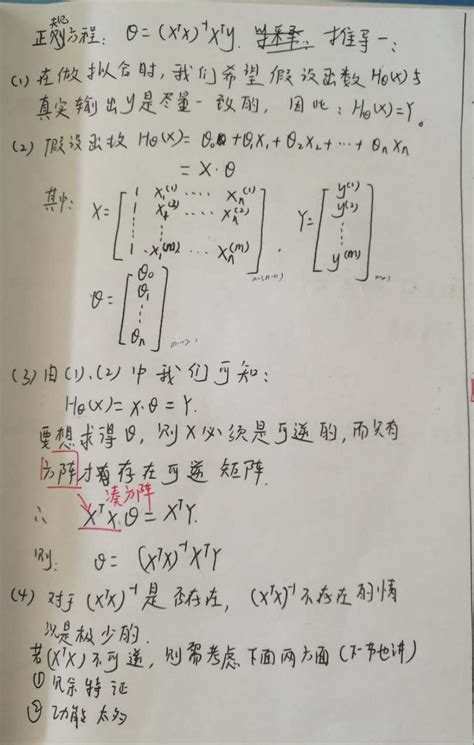 正规方程: θ = (XᵀX)⁻¹Xᵀy. 推导一:
(1) 在做拟合时,我们希望假设函数 Hθ(x)与
真实输出y是尽量一致的, 因此: Hθ(x)=Y。
(2) 假设函数 Hθ(x) = θ₀ + θ₁X₁ + θ₂X₂ + ... + θₙXₙ
= X·θ
其中: X = [1 X₁⁽¹⁾ .... Xₙ⁽¹⁾ Y = [y⁽¹⁾
1 X₁⁽²⁾ .... Xₙ⁽²⁾ y⁽²⁾
⋮ ⋮ ⋮ ⋮
1 X₁⁽ᵐ⁾ .... Xₙ⁽ᵐ⁾] , y⁽ᵐ⁾]
θ = [θ₀
θ₁
⋮
θₙ]
(3) 由(1)、(2)中我们可知:
Hθ(x) = x·θ = Y.
要想求得θ, 则X必须是可逆的,而只有
方阵才有存在可逆矩阵.
凑方阵
∴ XᵀX·θ = XᵀY.
则: θ = (XᵀX)⁻¹XᵀY
(4) 对于(XᵀX)⁻¹是否存在, (XᵀX)⁻¹不存在的情
况是极少的.
若(XᵀX)不可逆, 则需考虑下面两方面(下一节也讲)
① 冗余特征
② 太多